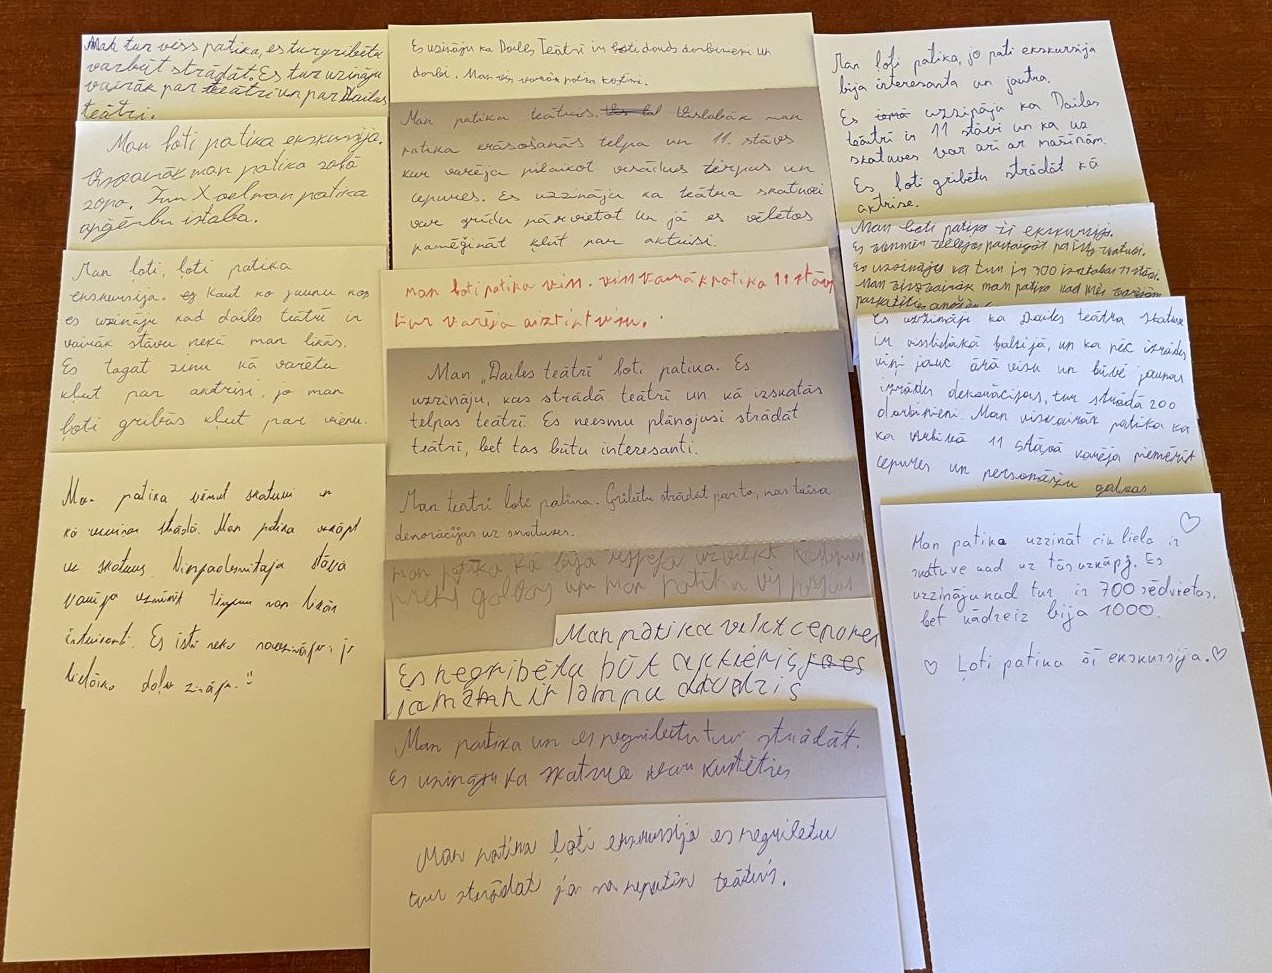 Man tur viss patika, es tur gribētu
varbūt strādāt. Es tur uzināju
vairāk par teātri un par Dailes
teātri.
Man ļoti patika ekskursija.
Visvairāk man patika zaļā
zona. Tur man patika
apģērbu istaba.
Man ļoti, ļoti patika
ekskursija. es kaut ko jaunu
es uzzināju kad dailes teātrī ir
vairāk stāvu nekā man likās.
Es tagat zinu kā varētu
kļut par aktrisi, jo man
ļoti gribās kļut par vienu.
Man patika
kā strādā. Man patika uzkāpt
uz skatuves. stāvā
varēja man likās
interesanti. Es īsti neko neuzzināju jo
lielāko daļu zināju.
Es uzināju ka Dailes Teātrī ir ļoti daudz darbinieki un
darbi. Man
Man patika teātris. Vislabāk man
patika krāsošanās telpa un 11. stāvs
kur varēja pilaikot vairākus tērpus un
cepures. Es uzzināju ka teātra skatuvei
var grīdu pārvietot un jā es vēlētos
pamēģināt kļut par aktrisi.
Man ļoti patika viss. viss vairāk patika 11 stāvs
tur varēja aiztikt visu.
Man „Dailes teātrī" ļoti patika. Es
uzzināju, kas strādā teātrī un kā izskatās
telpas teātrī. Es neesmu plānojusi strādāt
teātrī, bet tas būtu interesanti.
Man teātrī ļoti patika. Gribētu strādāt par to, kas taisa
dekorācijas uz skatuves.
Man patika ka bija iespēja uzvilkt
galvas un man patika
Man patika vilkt cepures
Es negribētu būt aktieris,
jo man ir lampu
Man patika un es negribētu tur strādāt.
Es uzināju ka skatuve var kustēties
Man patika ļoti ekskursija es negribētu
tur strādat jo man nepatīk teātris.
Man ļoti patika, jo pati ekskursija
bija interesanta un jautra.
Es uzzināju ka Dailes
teātrī ir 11 stāvi un ka uz
skatuves var arī ar mašīnām.
Es ļoti gribētu strādāt kā
aktrise.
Man ļoti patika šī ekskursija.
Es vienmēr
Es uzzināju ka tur ir 300 istabas 11 stāvi.
Man visvairāk man patika kad mēs varējām
Es uzzināju ka Dailes teātra skatuve
ir vislielākā baltijā, un ka pēc izrādes
viņi jauc ārā visu un būvē jaunas
izrādes dekorācijas, tur strādā 200
darbinieki. Man visvairāk patika ka
11 stāvā varēja piemērīt
cepures un personāžu galvas.
Man patika uzzināt cik liela ir
skatuve kad uz tās uzkāpj. Es
uzzināju kad tur ir 700 sēdvietas,
bet kādreiz bija 1000.
Ļoti patika šī ekskursija.